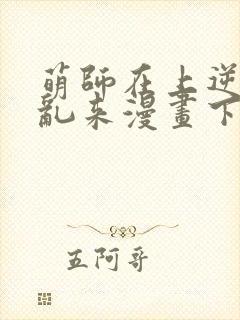 萌師在上逆
亂來漫畫下
五阿哥